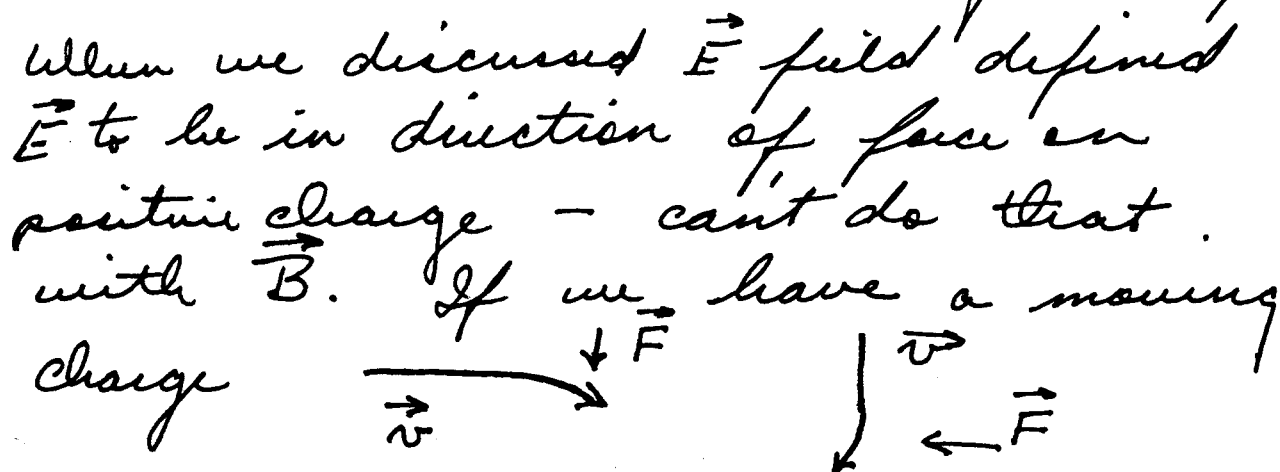 When we discussed E⃗ field defined
E⃗ to be in direction of force on
positive charge – can't do that
with B⃗. If we have a moving
charge v⃗ ↓ F⃗ v⃗ ← F⃗